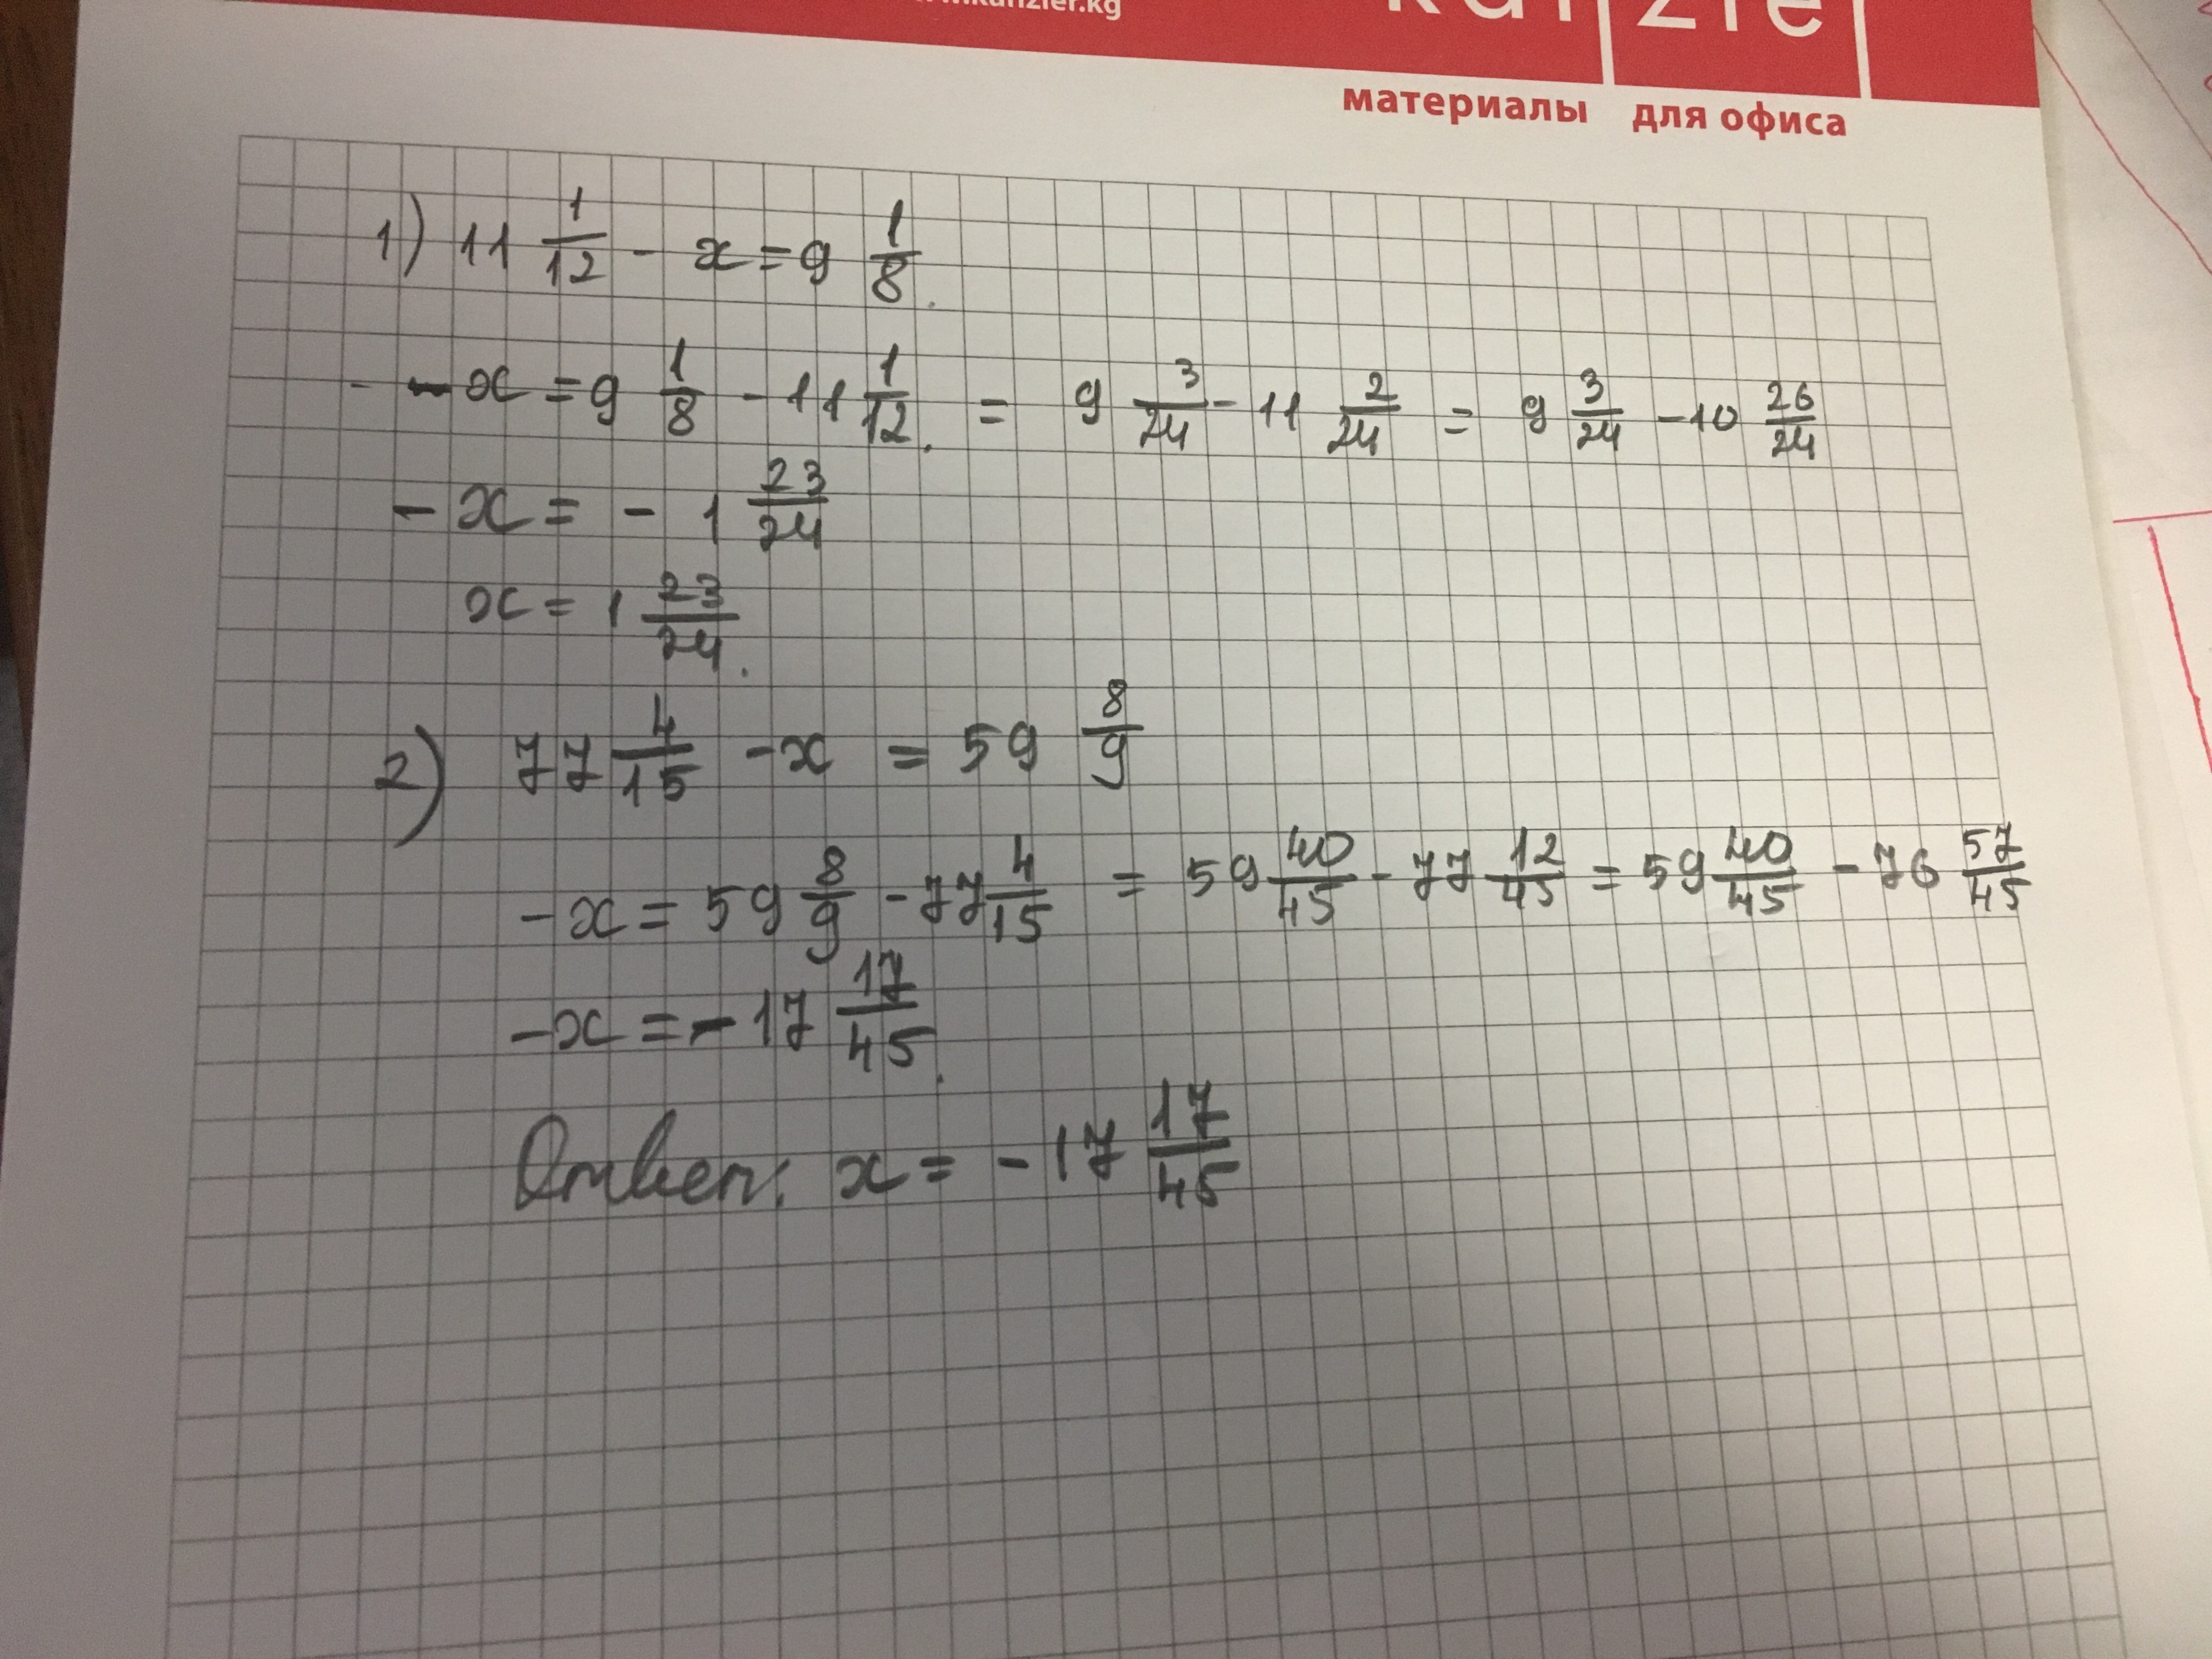 www.kanzler.kg
kanzle
материалы для офиса
1) 11 1/12 - x = 9 1/8.
- x = 9 1/8 - 11 1/12. = 9 3/24 - 11 2/24 = 9 3/24 - 10 26/24
- x = - 1 23/24
x = 1 23/24.
2) 77 4/15 - x = 59 8/9
- x = 59 8/9 - 77 4/15 = 59 40/45 - 77 12/45 = 59 40/45 - 76 57/45
- x = - 17 17/45.
Ответ: x = - 17 17/45